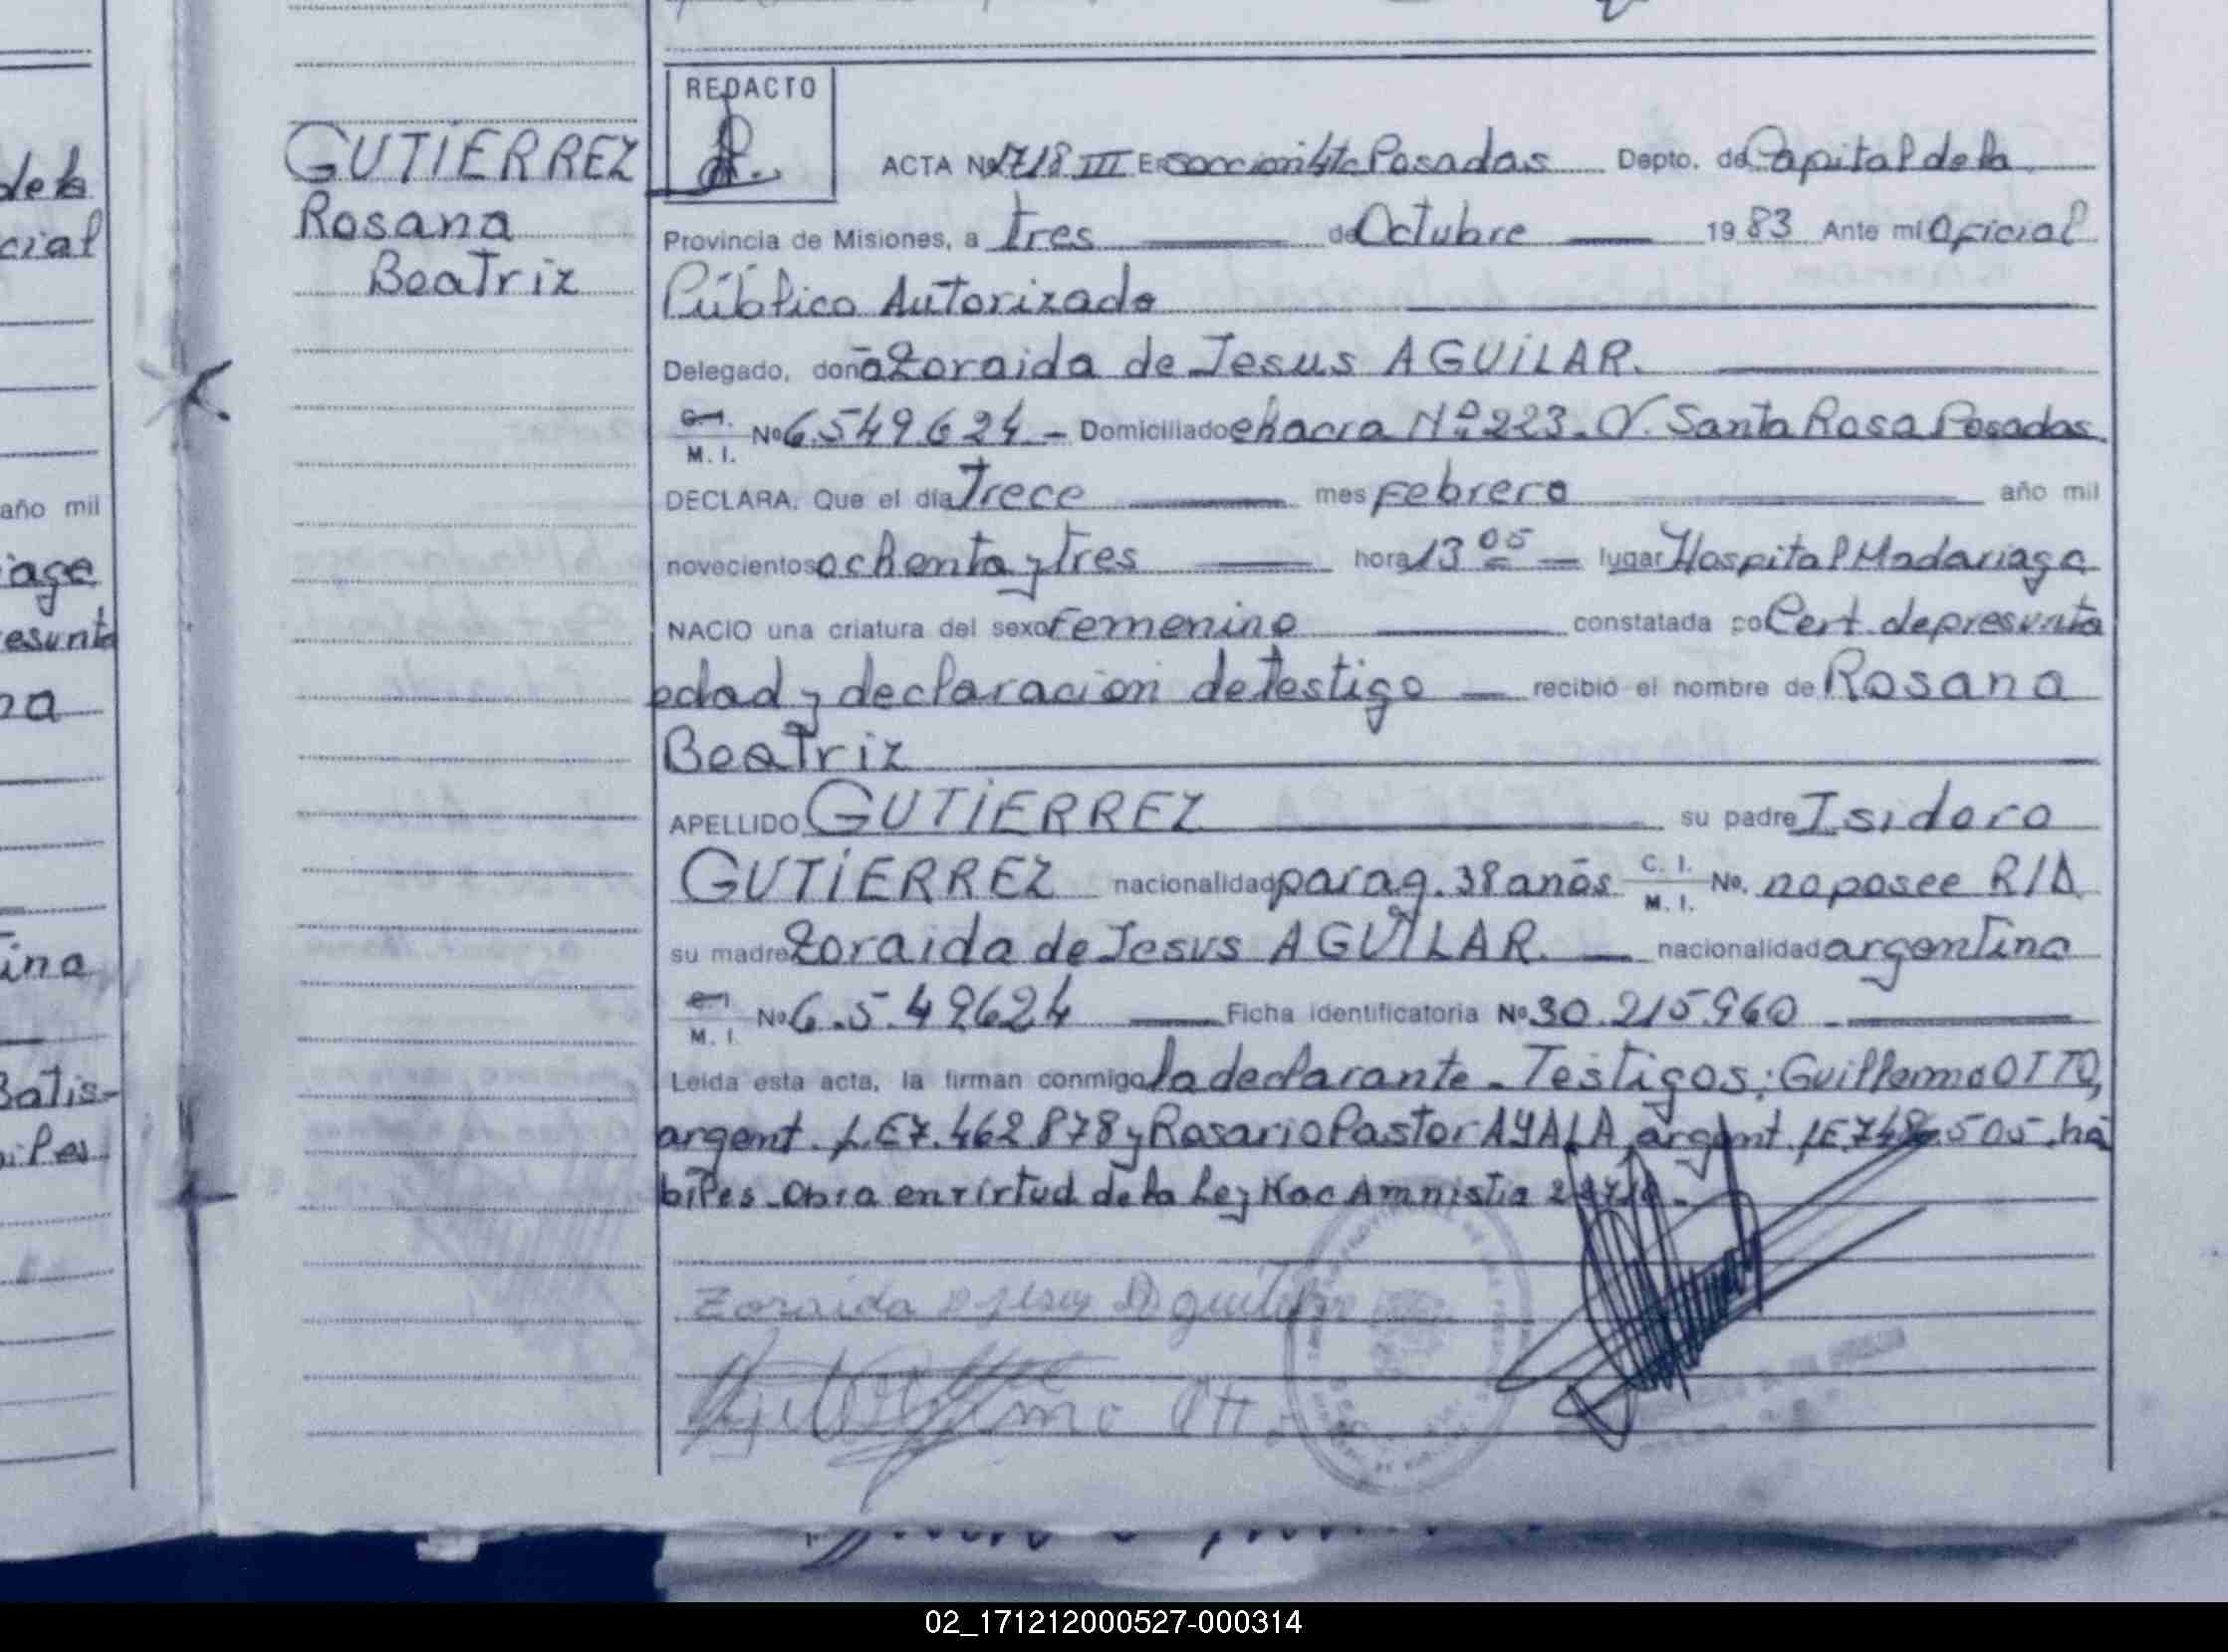 de la
cial
año mil
iage
esunta
na
tina
Batis-
biles
GUTIERREZ
Rosana
Beatriz
REDACTO
ACTA Nº 1718 III En seccion 4ta Posadas Depto. de Capital de la
Provincia de Misiones, a tres de Octubre 19 83 Ante mi Oficial
Público Autorizado
Delegado, doña Zoraida de Jesus AGUILAR.
C. I. / M. I. Nº 6.549624 - Domiciliado chacra Nº 223. V. Santa Rosa Posadas
DECLARA: Que el día Trece mes Febrero año mil
novecientos ochenta y tres hora 13 05 lugar Hospital Madariaga
NACIO una criatura del sexo Femenino constatada por Cert. de presunta
edad y declaracion de testigo recibió el nombre de Rosana
Beatriz
APELLIDO GUTIERREZ su padre Isidoro
GUTIERREZ nacionalidad parag. 38 años C. I. / M. I. No. no posee R/A
su madre Zoraida de Jesus AGUILAR. nacionalidad argentina
C. I. / M. I. Nº 6.549624 Ficha identificatoria Nº 30.215.960
Leida esta acta, la firman conmigo la declarante - Testigos: Guillermo OTTO,
argent. L.E 7.462878 y Rosario Pastor AYALA argent. LE 748 505 há
biles - Obra en virtud de la Ley Nac Amnistia
Zoraida D Jesus Aguilar
02_171212000527-000314